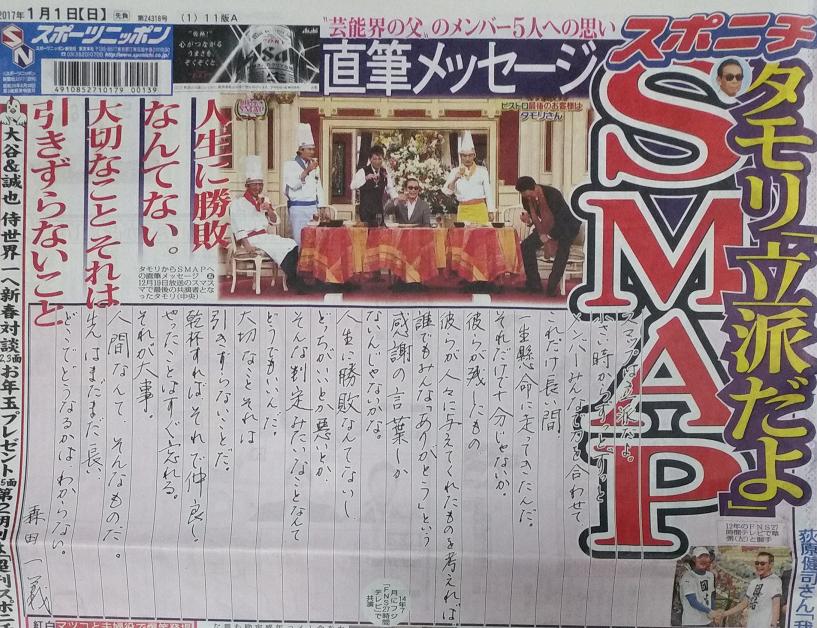 2017年1月1日【日】
先負
第24318号
(1)11版A
スポーツニッポン
4910852710179 00139
Asahi
"芸能界の父"のメンバー5人への思い
直筆メッセージ
スポニチ
SMAP
タモリ「立派だよ」
ビストロ最後のお客様は
タモリさん
人生に勝敗
なんてない。
大切なことそれは
引きずらないこと
タモリからSMAPへ
の直筆メッセージ
12月19日放送のスマス
マで最後の共演者とな
ったタモリ(中央)
大谷&誠也 侍世界一へ新春対談 2,3面
お年玉プレゼント
スマップは立派だよ。
小さい時からずっと
メンバーみんなで力を合わせて
これだけ長い間
一生懸命に走ってきたんだ。
それだけで十分じゃないか。
彼らが残したもの
彼らが人々に与えてくれたものを考えれば
誰でもみんな「ありがとう」という
感謝の言葉しか
ないんじゃないかな。
人生に勝敗なんてないし
どっちがいいとか悪いとか、
そんな判定みたいなことなんて
どうでもいいんだ。
大切なことそれは
引きずらないことだ。
乾杯すればそれで仲良し。
やったことはすぐ忘れる。
それが大事。
人間なんてそんなものだ。
先はまだまだ長い
どこでどうなるかはわからない。
森田一義
12年のFNS27
時間テレビで草
彅(左)と握手
14年7
月にフジ
「FNS27時間
テレビ」で
共演
荻原健司さん「我
紅白
マツコと夫婦役で爆笑登場